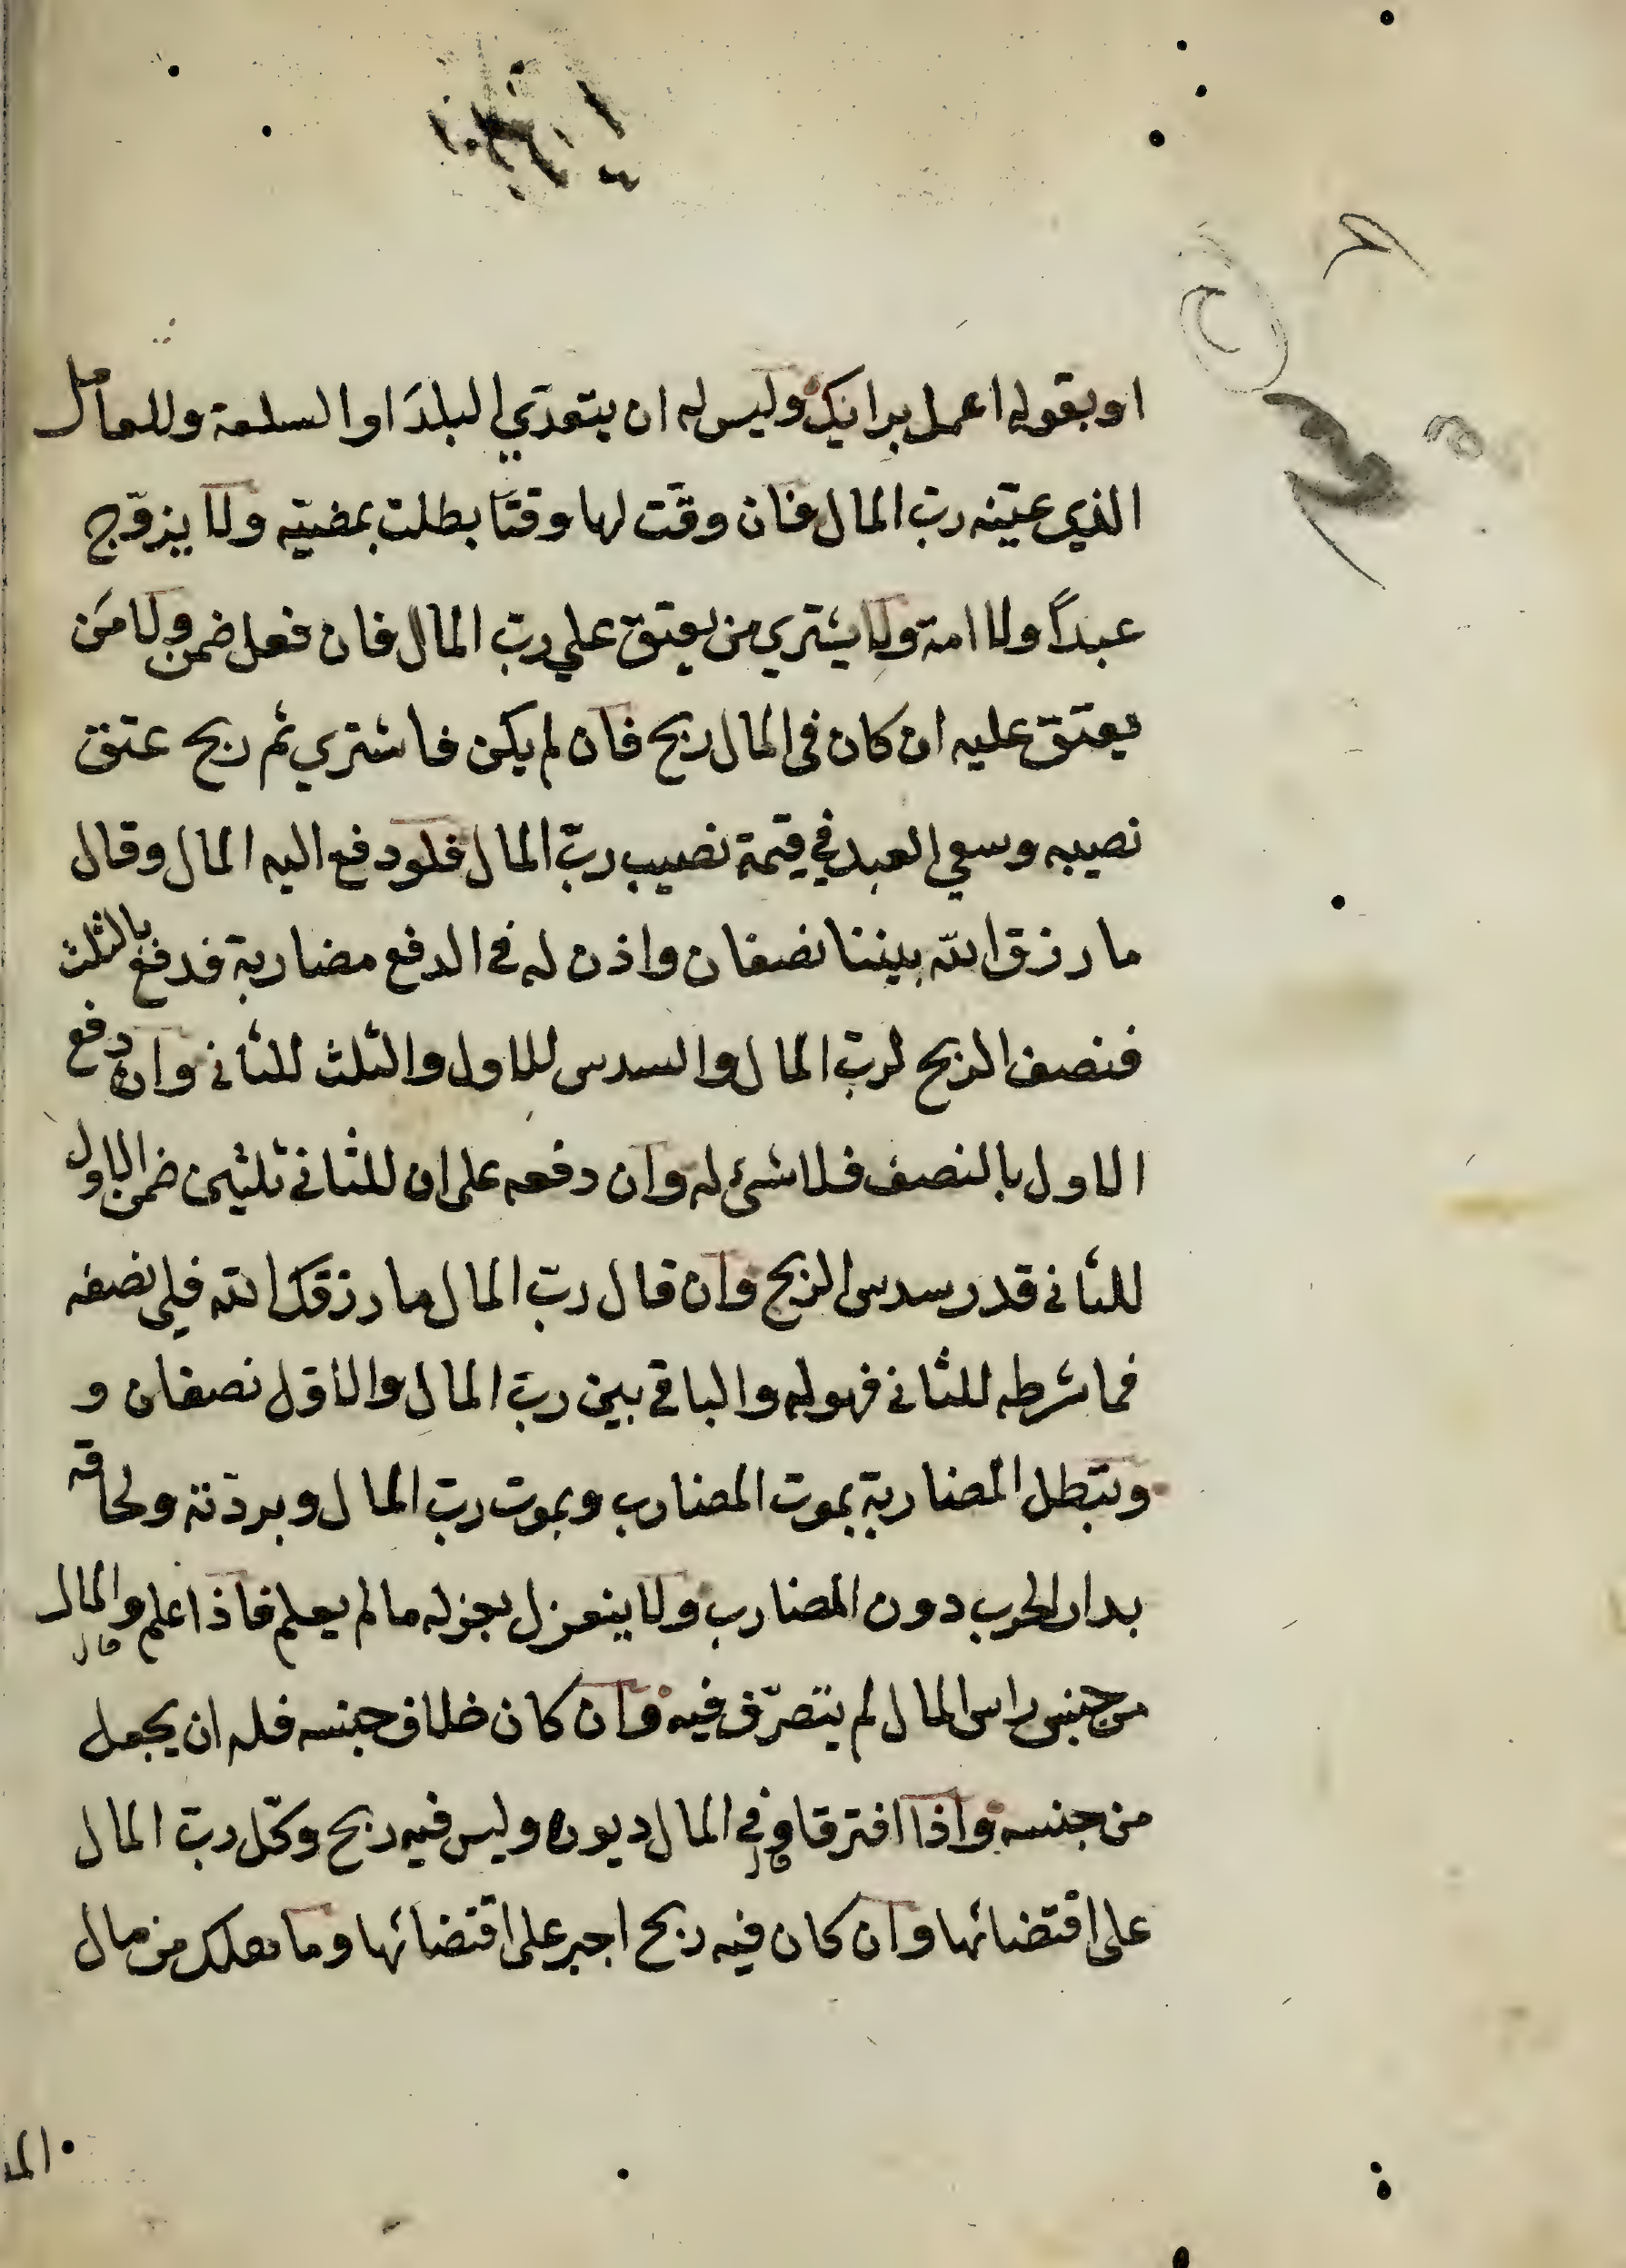 او بقوله اعمل برايك وليس له ان يتعدّي البلدَ او السلعة والمعامل
الذي عيّنه ربّ المال فان وقّت لها وقتًا بطلت بمضيّه ولا يزوّج
عبداً ولا امة ولا يشتري من يعتق علي ربّ المال فان فعل ضمن ولا مَن
يعتق عليه ان كان في المال ربح فان لم يكن فاشتري ثم ربح عتق
نصيبه وسعي العبد في قيمة نصيب ربّ المال فلو دفع اليه المال وقال
ما رزق الله بيننا نصفان واذن له في الدفع مضاربة فدفع بالثلث
فنصف الربح لربّ المال والسدس للاول والثلث للثاني وان دفع
الاول بالنصف فلا شئ له وان دفعه على ان للثاني ثلثين ضمن الاول
للثاني قدر سدس الربح وان قال ربّ المال ما رزقك الله فلي نصفه
فما شرطه للثاني فهو له والباقي بين ربّ المال والاوّل نصفان و
وتبطل المضاربة بموت المضارب وبموت ربّ المال وبردّته ولحاقه
بدار الحرب دون المضارب ولا ينعزل بعزله ما لم يعلم فاذا علم والمال
من جنس راس المال لم يتصرّف فيه وان كان خلاف جنسه فله ان يجعل
من جنسه واذا افترقا وفي المال ديون وليس فيه ربح وكّل ربّ المال
على اقتضائها وان كان فيه ربح اجبر على اقتضائها وما هلك من مال